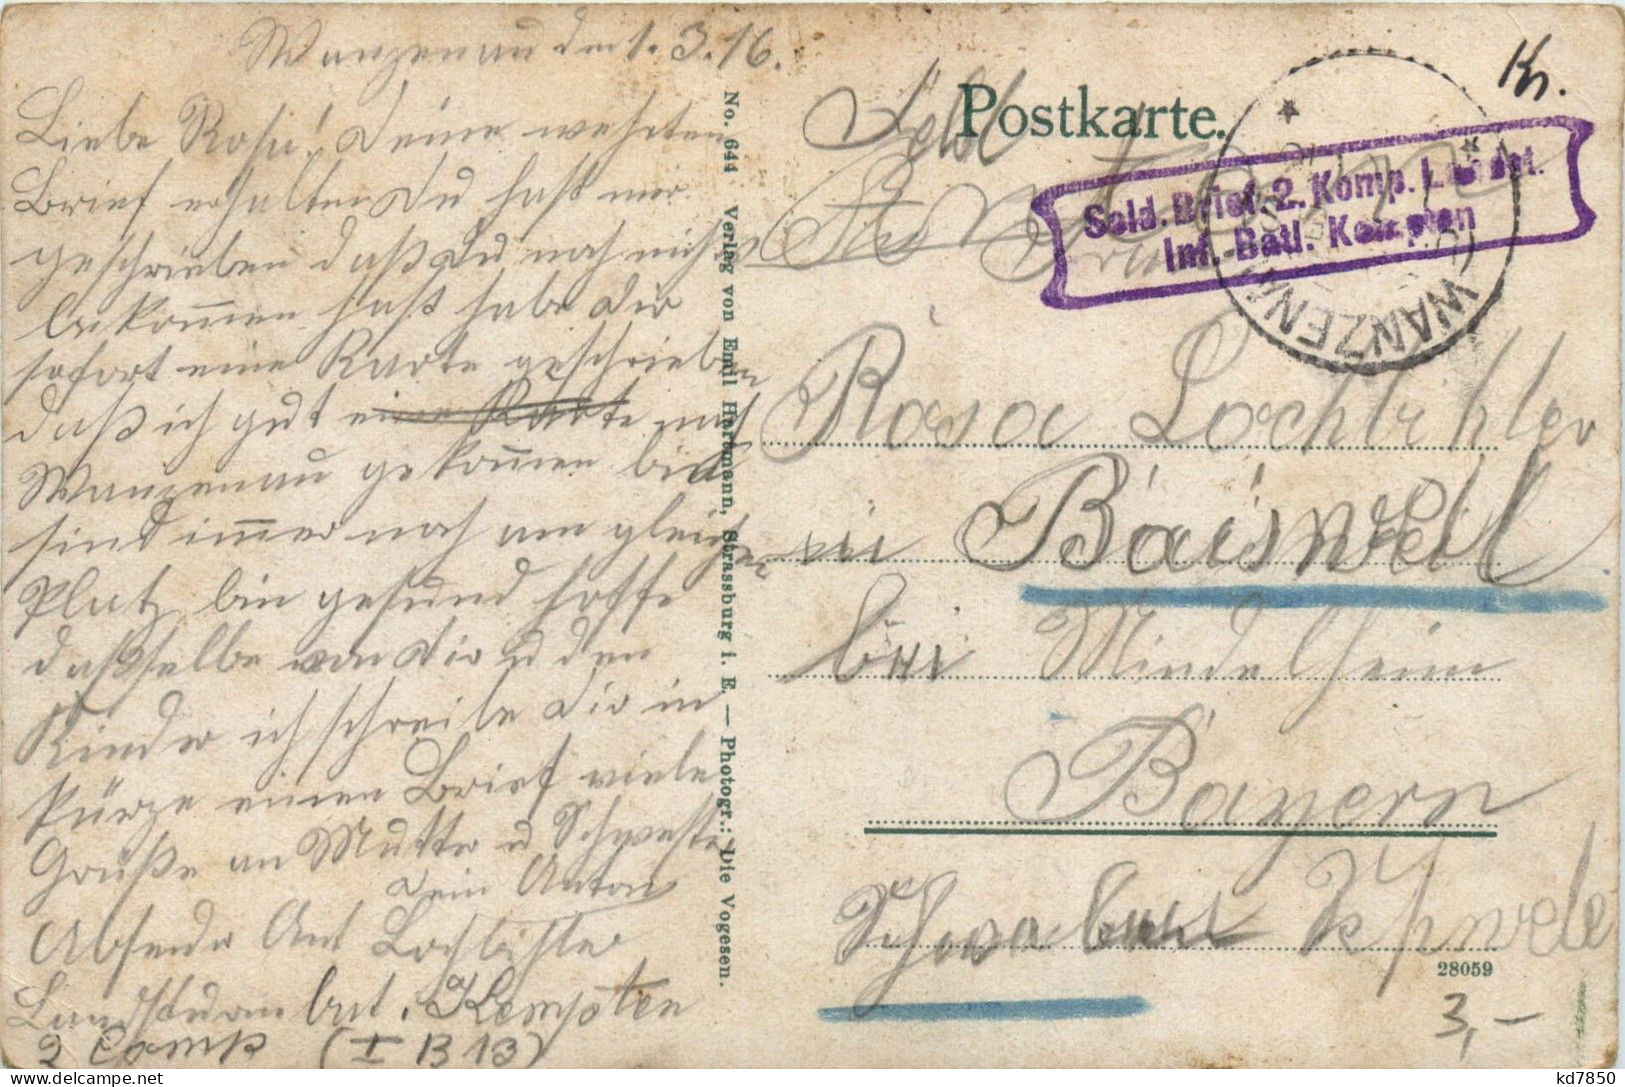 Wanzenau den 1.3.16.
Liebe Rosa! Deine wehrten
Brief erhalten Du hast mir
geschrieben daß Du noch nichts
bekommen hast habe Dir
sofort eine Karte geschrieben
daß ich gut eine Karte nach
Wanzenau gekommen bin
sind immer noch am gleichen
Platz bin gesund hoffe
dasselbe von Dir u den
Kinder ich schreibe Dir in
kürze einen Brief viele
Grüße an Mutter u Schwester
Dein Anton
Absender Ant Lochbihler
Landsturm bat. Kempten
2 Comp (I B 13)
No. 644 Verlag von Emil Hartmann, Strassburg i. E. — Photogr.: Die Vogesen.
Postkarte.
Feld
Kr.
Sold.-Brief. 2. Komp. Landst.
Inf.-Batl. Kempten
WANZENAU
Rosa Lochbihler
in Baisweil
bei Mindelheim
Bayern
Schwaben
28059
3,-
kd7850